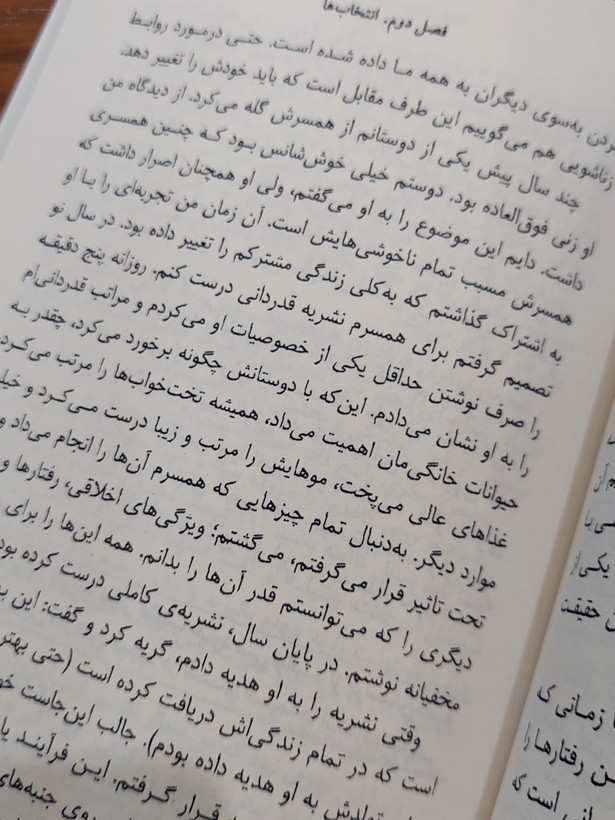 فصل دوم. انتخاب‌ها
به‌سوی دیگران به همه ما داده شده است. حتی درمورد روابط
زناشویی هم می‌گوییم این طرف مقابل است که باید خودش را تغییر دهد.
چند سال پیش یکی از دوستانم از همسرش گله می‌کرد. از دیدگاه من
او زنی فوق‌العاده بود. دوستم خیلی خوش‌شانس بود که چنین همسری
داشت. دایم این موضوع را به او می‌گفتم، ولی او همچنان اصرار داشت که
همسرش مسبب تمام ناخوشی‌هایش است. آن زمان من تجربه‌ای را با او
به اشتراک گذاشتم که به‌کلی زندگی مشترکم را تغییر داده بود. در سال نو
تصمیم گرفتم برای همسرم نشریه قدردانی درست کنم. روزانه پنج دقیقه
را صرف نوشتن حداقل یکی از خصوصیات او می‌کردم و مراتب قدردانی‌ام
را به او نشان می‌دادم. این‌که با دوستانش چگونه برخورد می‌کرد، چقدر به
حیوانات خانگی‌مان اهمیت می‌داد، همیشه تخت‌خواب‌ها را مرتب می‌کرد
غذاهای عالی می‌پخت، موهایش را مرتب و زیبا درست می‌کرد و
موارد دیگر. به‌دنبال تمام چیزهایی که همسرم آن‌ها را انجام می‌داد و
تحت تاثیر قرار می‌گرفتم، می‌گشتم؛ ویژگی‌های اخلاقی، رفتارها و
دیگری را که می‌توانستم قدر آن‌ها را بدانم. همه این‌ها را برای
مخفیانه نوشتم. در پایان سال، نشریه‌ی کاملی درست کرده
وقتی نشریه را به او هدیه دادم، گریه کرد و گفت: این
است که در تمام زندگی‌اش دریافت کرده است (حتی بهتر
تولدش به او هدیه داده بودم). جالب این‌جاست
قرار گرفتم. این فرآیند
روی جنبه‌های
از
یکی از
حقیقت
زمانی که
رفتارها را
است که